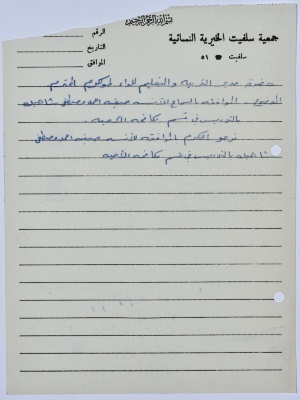 بسم الله الرحمن الرحيم
جمعية سلفيت الخيرية النسائية
سلفيت ☎ ٥١
الرقم
التاريخ
الموافق
حضرة مدير التربية والتعليم للواء طولكرم المحترم
الموضوع - الموافقة السماح للآنسه احمد مصطفى
بالتدريس في قسم مكافحة الأمية.
نرجو التكرم بالموافقة للآنسه احمد مصطفى
بالتدريس في قسم مكافحة الأمية